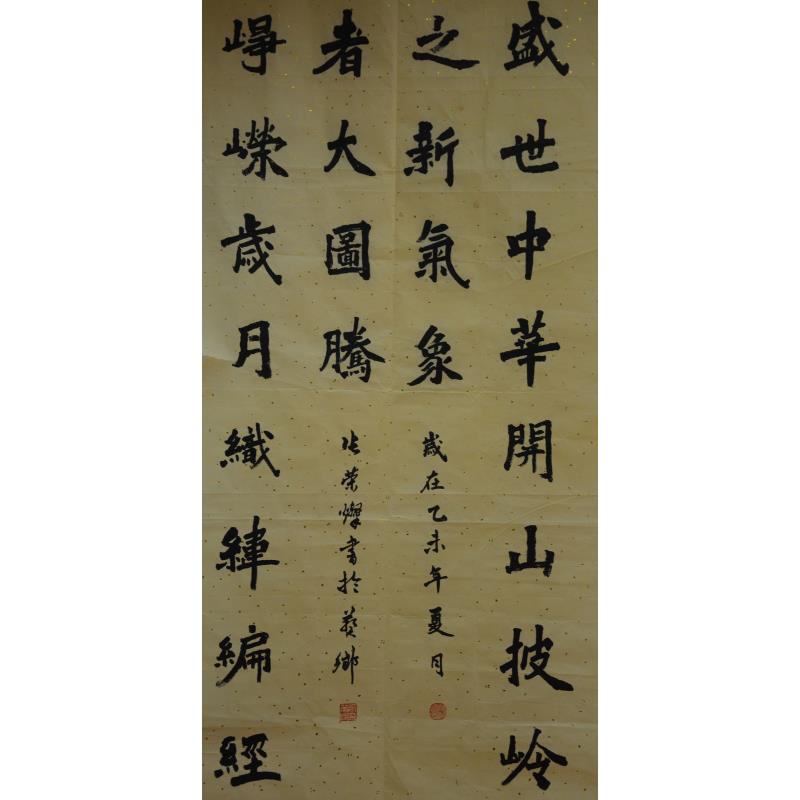 盛世中華開山披岭
之新氣象
歲在乙未年夏月
崢嶸歲月織緯編經
者大圖騰
张荣燦書於葵鄉